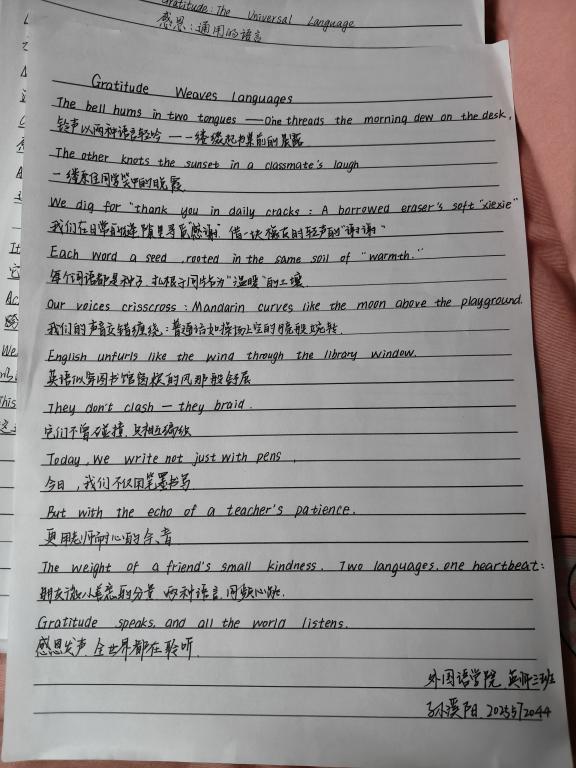 Gratitude: The Universal Language
感恩：通用的语言
Gratitude Weaves Languages
The bell hums in two tongues — One threads the morning dew on the desk,
铃声以两种语言轻吟 — 一缕缀起书桌前的晨露
The other knots the sunset in a classmate's laugh
一缕系住同学笑中的晚霞
We dig for "thank you in daily cracks : A borrowed eraser's soft "xiexie"
我们在日常的缝隙里寻觅"感谢" 借一块橡皮的轻声的"谢谢"
Each word a seed , rooted in the same soil of "warmth."
每个词语都是种子，扎根于同片名为"温暖"的土壤.
Our voices crisscross : Mandarin curves like the moon above the playground.
我们的声音交错缠绕：普通话如操场上空的月般婉转
English unfurls like the wind through the library window.
英语似穿图书馆窗棂的风那般舒展
They don't clash — they braid .
它们不曾碰撞，只相互编织
Today, we write not just with pens ,
今日，我们不仅用笔墨书写
But with the echo of a teacher's patience.
更用老师耐心的余音
The weight of a friend's small kindness. Two languages, one heartbeat:
朋友微小善意的分量 两种语言，同频心跳.
Gratitude speaks, and all the world listens.
感恩发声，全世界都在聆听.
外国语学院 英师三班
孙溪阳 2025572044